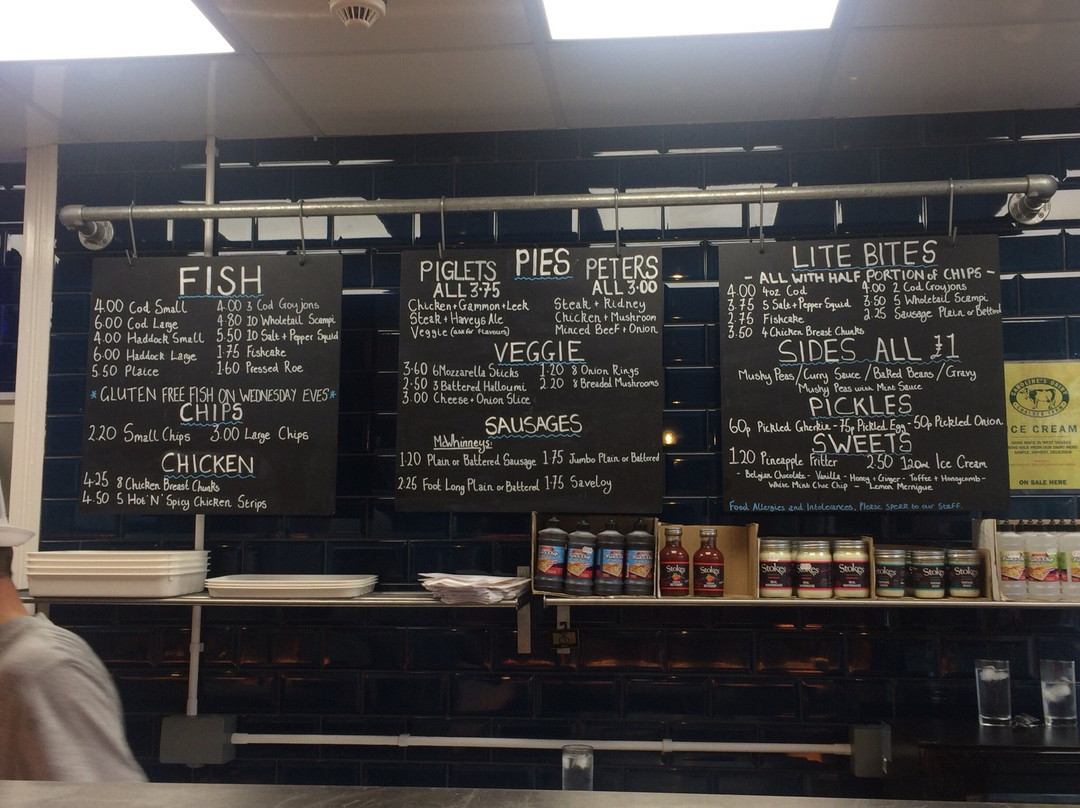 FISH
4.00 Cod Small
6.00 Cod Large
4.00 Haddock Small
6.00 Haddock Large
5.50 Plaice
4.00 3 Cod Goujons
4.80 10 Wholetail Scampi
5.50 10 Salt + Pepper Squid
1.75 Fishcake
1.60 Pressed Roe
*GLUTEN FREE FISH ON WEDNESDAY EVES*
CHIPS
2.20 Small Chips 3.00 Large Chips
CHICKEN
4.25 8 Chicken Breast Chunks
4.50 5 Hot 'N' Spicy Chicken Strips
PIES
PIGLETS
ALL 3.75
Chicken + Gammon + Leek
Steak + Harveys Ale
Veggie (ask for flavours)
PETERS
ALL 3.00
Steak + Kidney
Chicken + Mushroom
Minced Beef + Onion
VEGGIE
3.60 6 Mozzarella Sticks
2.50 3 Battered Halloumi
3.00 Cheese + Onion Slice
1.20 8 Onion Rings
2.20 8 Breaded Mushrooms
SAUSAGES
McWhinneys:
1.20 Plain or Battered Sausage 1.75 Jumbo Plain or Battered
2.25 Foot Long Plain or Battered 1.75 Saveloy
LITE BITES
- ALL WITH HALF PORTION of CHIPS -
4.00 4oz Cod
3.75 5 Salt + Pepper Squid
2.75 Fishcake
3.50 4 Chicken Breast Chunks
4.00 2 Cod Goujons
3.50 5 Wholetail Scampi
2.25 Sausage Plain or Battered
SIDES ALL £1
Mushy Peas / Curry Sauce / Baked Beans / Gravy
Mushy Peas with Mint Sauce
PICKLES
60p Pickled Gherkin - 75p Pickled Egg - 50p Pickled Onion
SWEETS
1.20 Pineapple Fritter 2.50 120ml Ice Cream
- Belgian Chocolate - Vanilla - Honey + Ginger - Toffee + Honeycomb -
White Mint Choc Chip - Lemon Merringue
Food Allergies and Intolerances, Please speak to our Staff.
ICE CREAM
ON SALE HERE
Stokes
Stokes
Stokes
Stokes
Stokes
Stokes
Stokes
Stokes